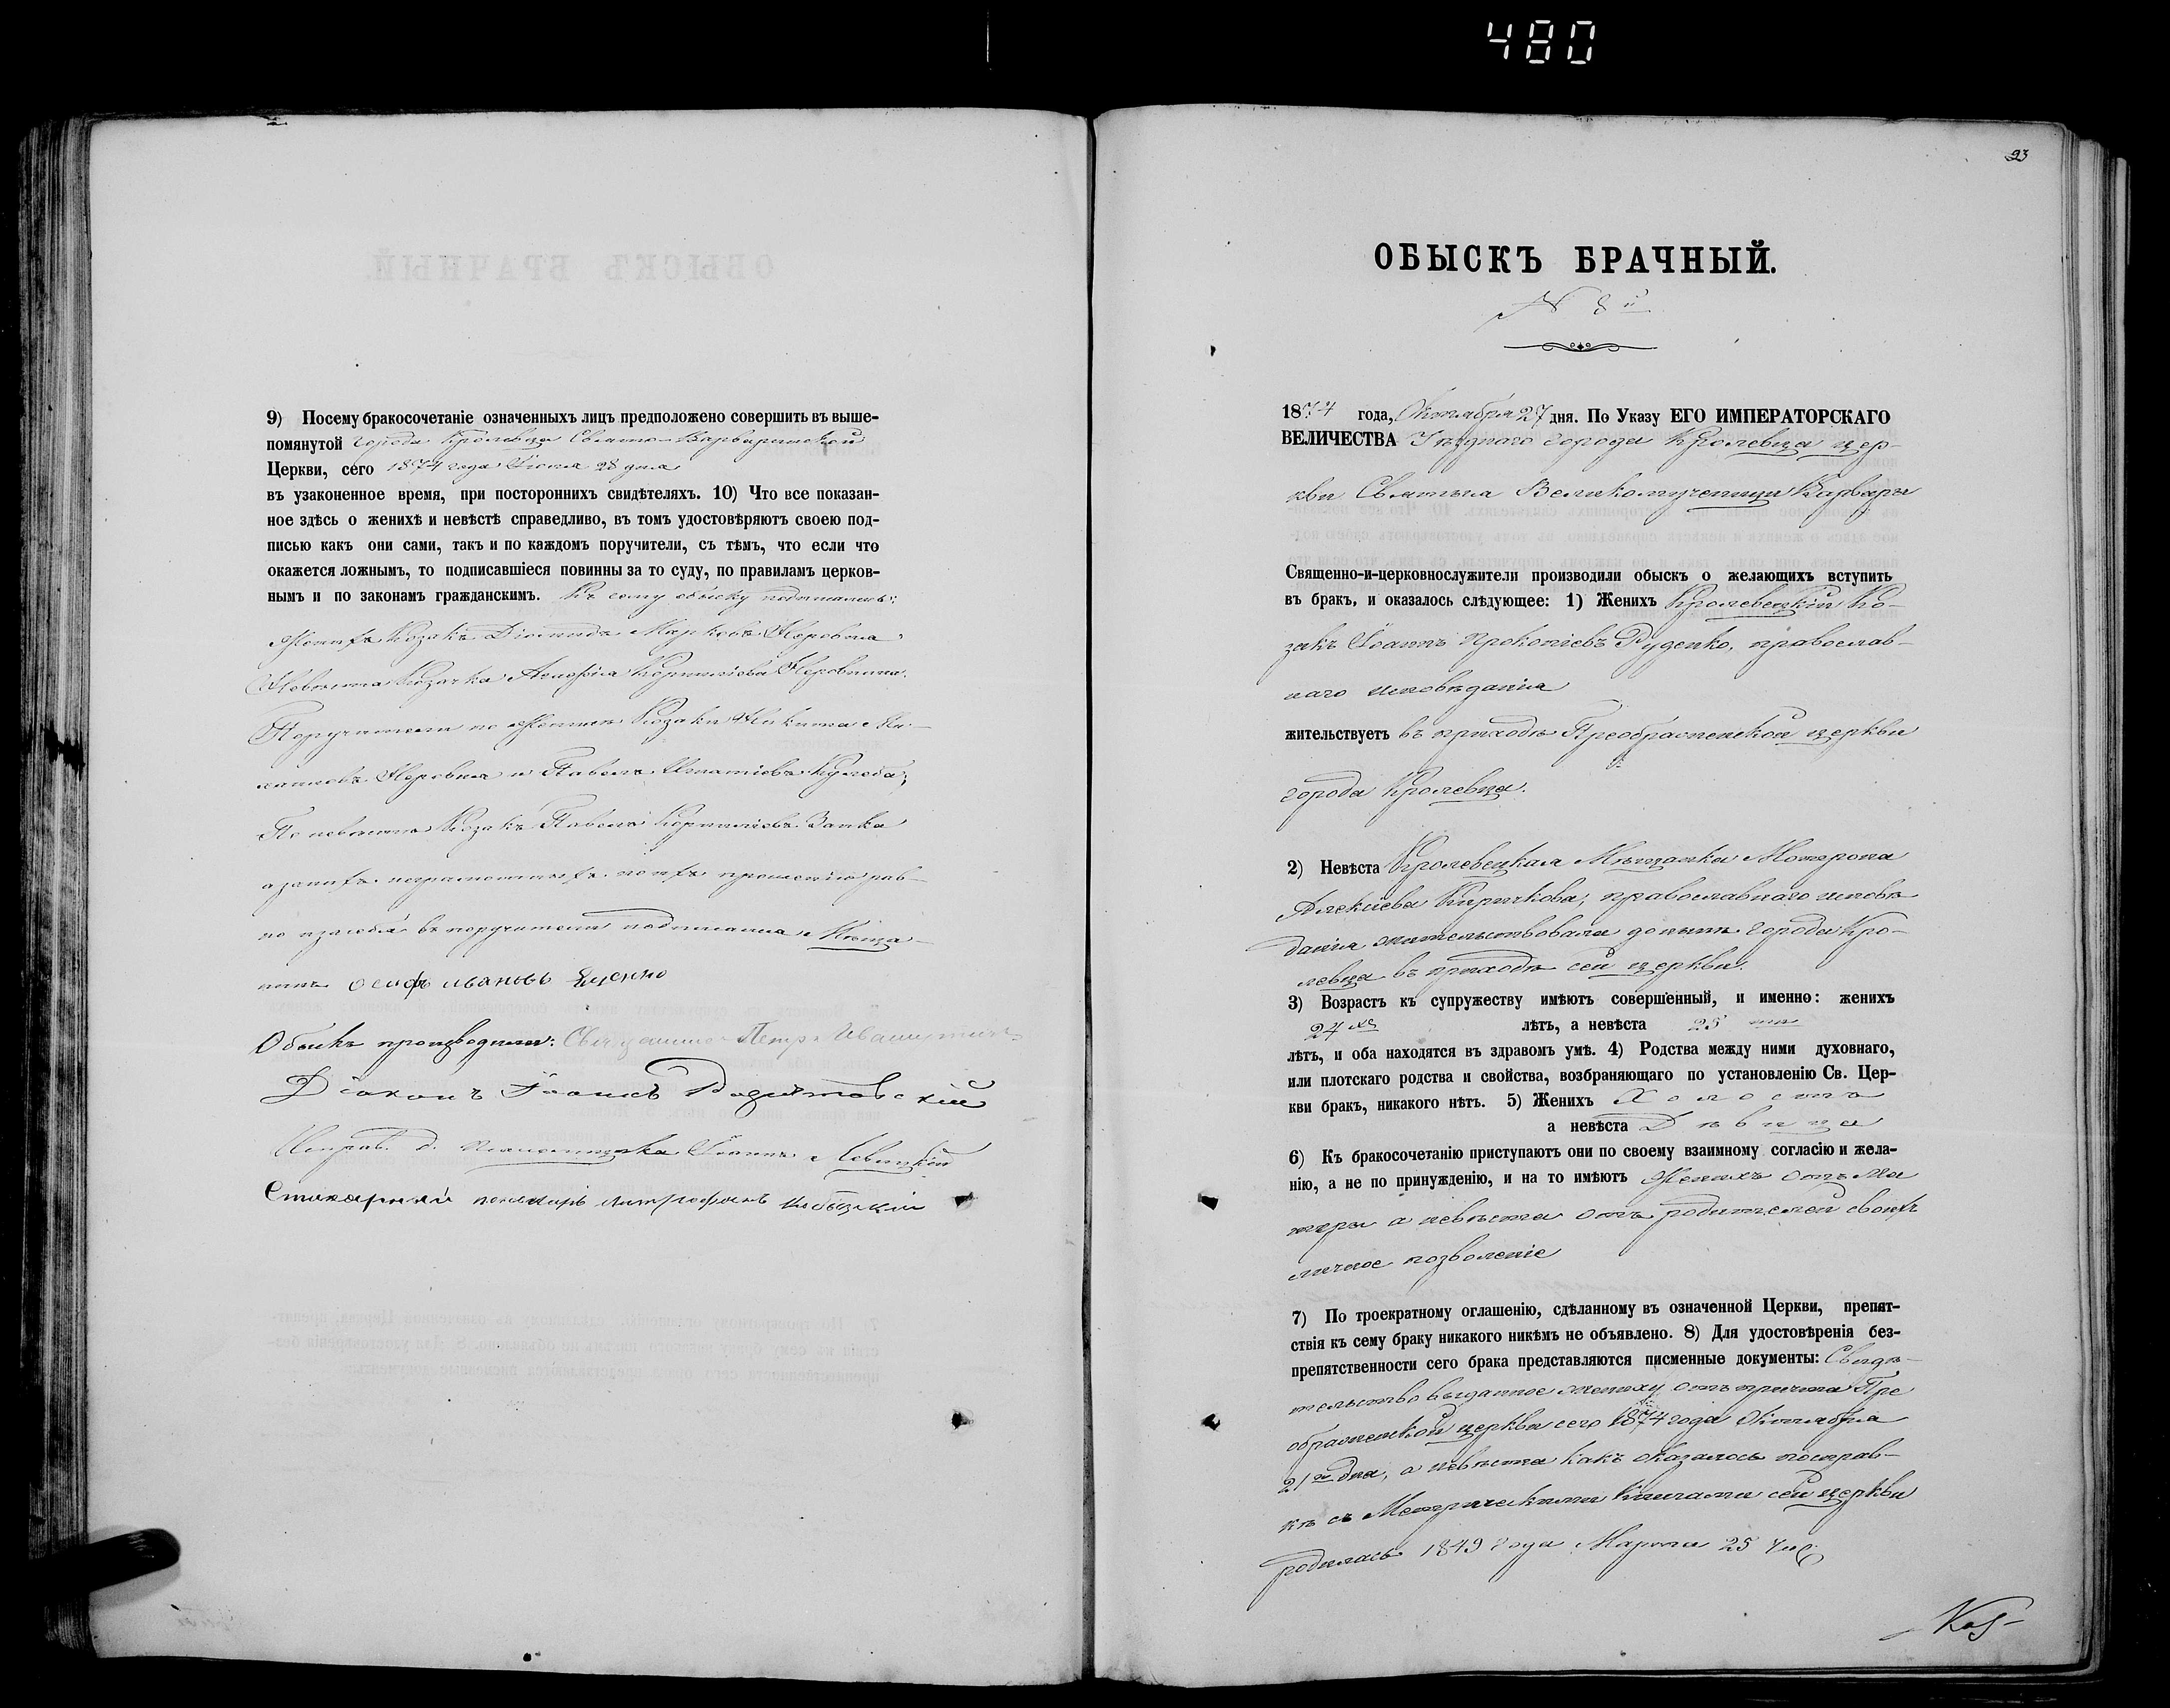 480
9) Посему бракосочетаніе означенныхъ лицъ предположено совершить въ выше-
помянутой города Кролевца Свято-Варваринской
Церкви, сего 1874 года Іюля 28 дня
въ узаконенное время, при постороннихъ свидѣтеляхъ. 10) Что все показан-
ное здѣсь о женихѣ и невѣстѣ справедливо, въ томъ удостовѣряютъ своею под-
писью какъ они сами, такъ и по каждомъ поручители, съ тѣмъ, что если что
окажется ложнымъ, то подписавшіеся повинны за то суду, по правиламъ церков-
нымъ и по законамъ гражданскимъ. Къ сему обыску подписались:
Женихъ Козакъ Діомидъ Марковъ
Невѣста Козачка Корниліева
Поручители по Женихѣ Козаки Никита Ми-
хаиловъ и Павелъ Игнатіевъ Кулеба;
По невѣстѣ Козакъ Павелъ Корниліевъ Заика
а за нихъ неграмотныхъ по ихъ прошенію рав-
но и за себя въ поручители подписался Мѣща-
нинъ Осифъ ивановъ Яценко
Обыскъ производили: Священникъ Петръ
Діаконъ Іоаннъ
Исправ. д. Псаломщика Іоаннъ Левицкій
Стихарный пономарь Митрофанъ
93
ОБЫСКЪ БРАЧНЫЙ.
N 8й
1874 года, Октября 27 дня. По Указу ЕГО ИМПЕРАТОРСКАГО
ВЕЛИЧЕСТВА Уѣзднаго города Кролевца цер-
кви Святыя Великомученицы Варвары
Священно-и-церковнослужители производили обыскъ о желающихъ вступить
въ бракъ, и оказалось слѣдующее: 1) Женихъ Кролевецкій Ко-
закъ Іоаннъ Прокопіевъ Руденко, православ-
наго исповѣданія
жительствуетъ въ приходѣ Преображенской церкви
города Кролевца.
2) Невѣста Кролевецкая Мѣщанка Мотрона
Алексіева Киричкова, православнаго исповѣ
данія жительствовала донынѣ города Кро-
левца въ приходѣ сей церкви.
3) Возрастъ къ супружеству имѣютъ совершенный, и именно: женихъ
24хъ лѣтъ, а невѣста 25 ти
лѣтъ, и оба находятся въ здравомъ умѣ. 4) Родства между ними духовнаго,
или плотскаго родства и свойства, возбраняющаго по установленію Св. Цер-
кви бракъ, никакого нѣтъ. 5) Женихъ Холостъ
а невѣста Дѣвица
6) Къ бракосочетанію приступаютъ они по своему взаимному согласію и жела-
нію, а не по принужденію, и на то имѣютъ Женихъ отъ Ма
тери а невѣста отъ родителей своихъ
личное позволеніе
7) По троекратному оглашенію, сдѣланному въ означенной Церкви, препят-
ствія къ сему браку никакого никѣмъ не объявлено. 8) Для удостовѣренія без-
препятственности сего брака представляются писменные документы: Свидѣ-
тельство выданное жениху отъ причта Пре
ображенской церкви сего 1874 года Октября
21го дня, а невѣста какъ оказалось по справ-
кѣ съ Метрическими Книгами сей церкви
родилась 1849 года Марта 25 чис